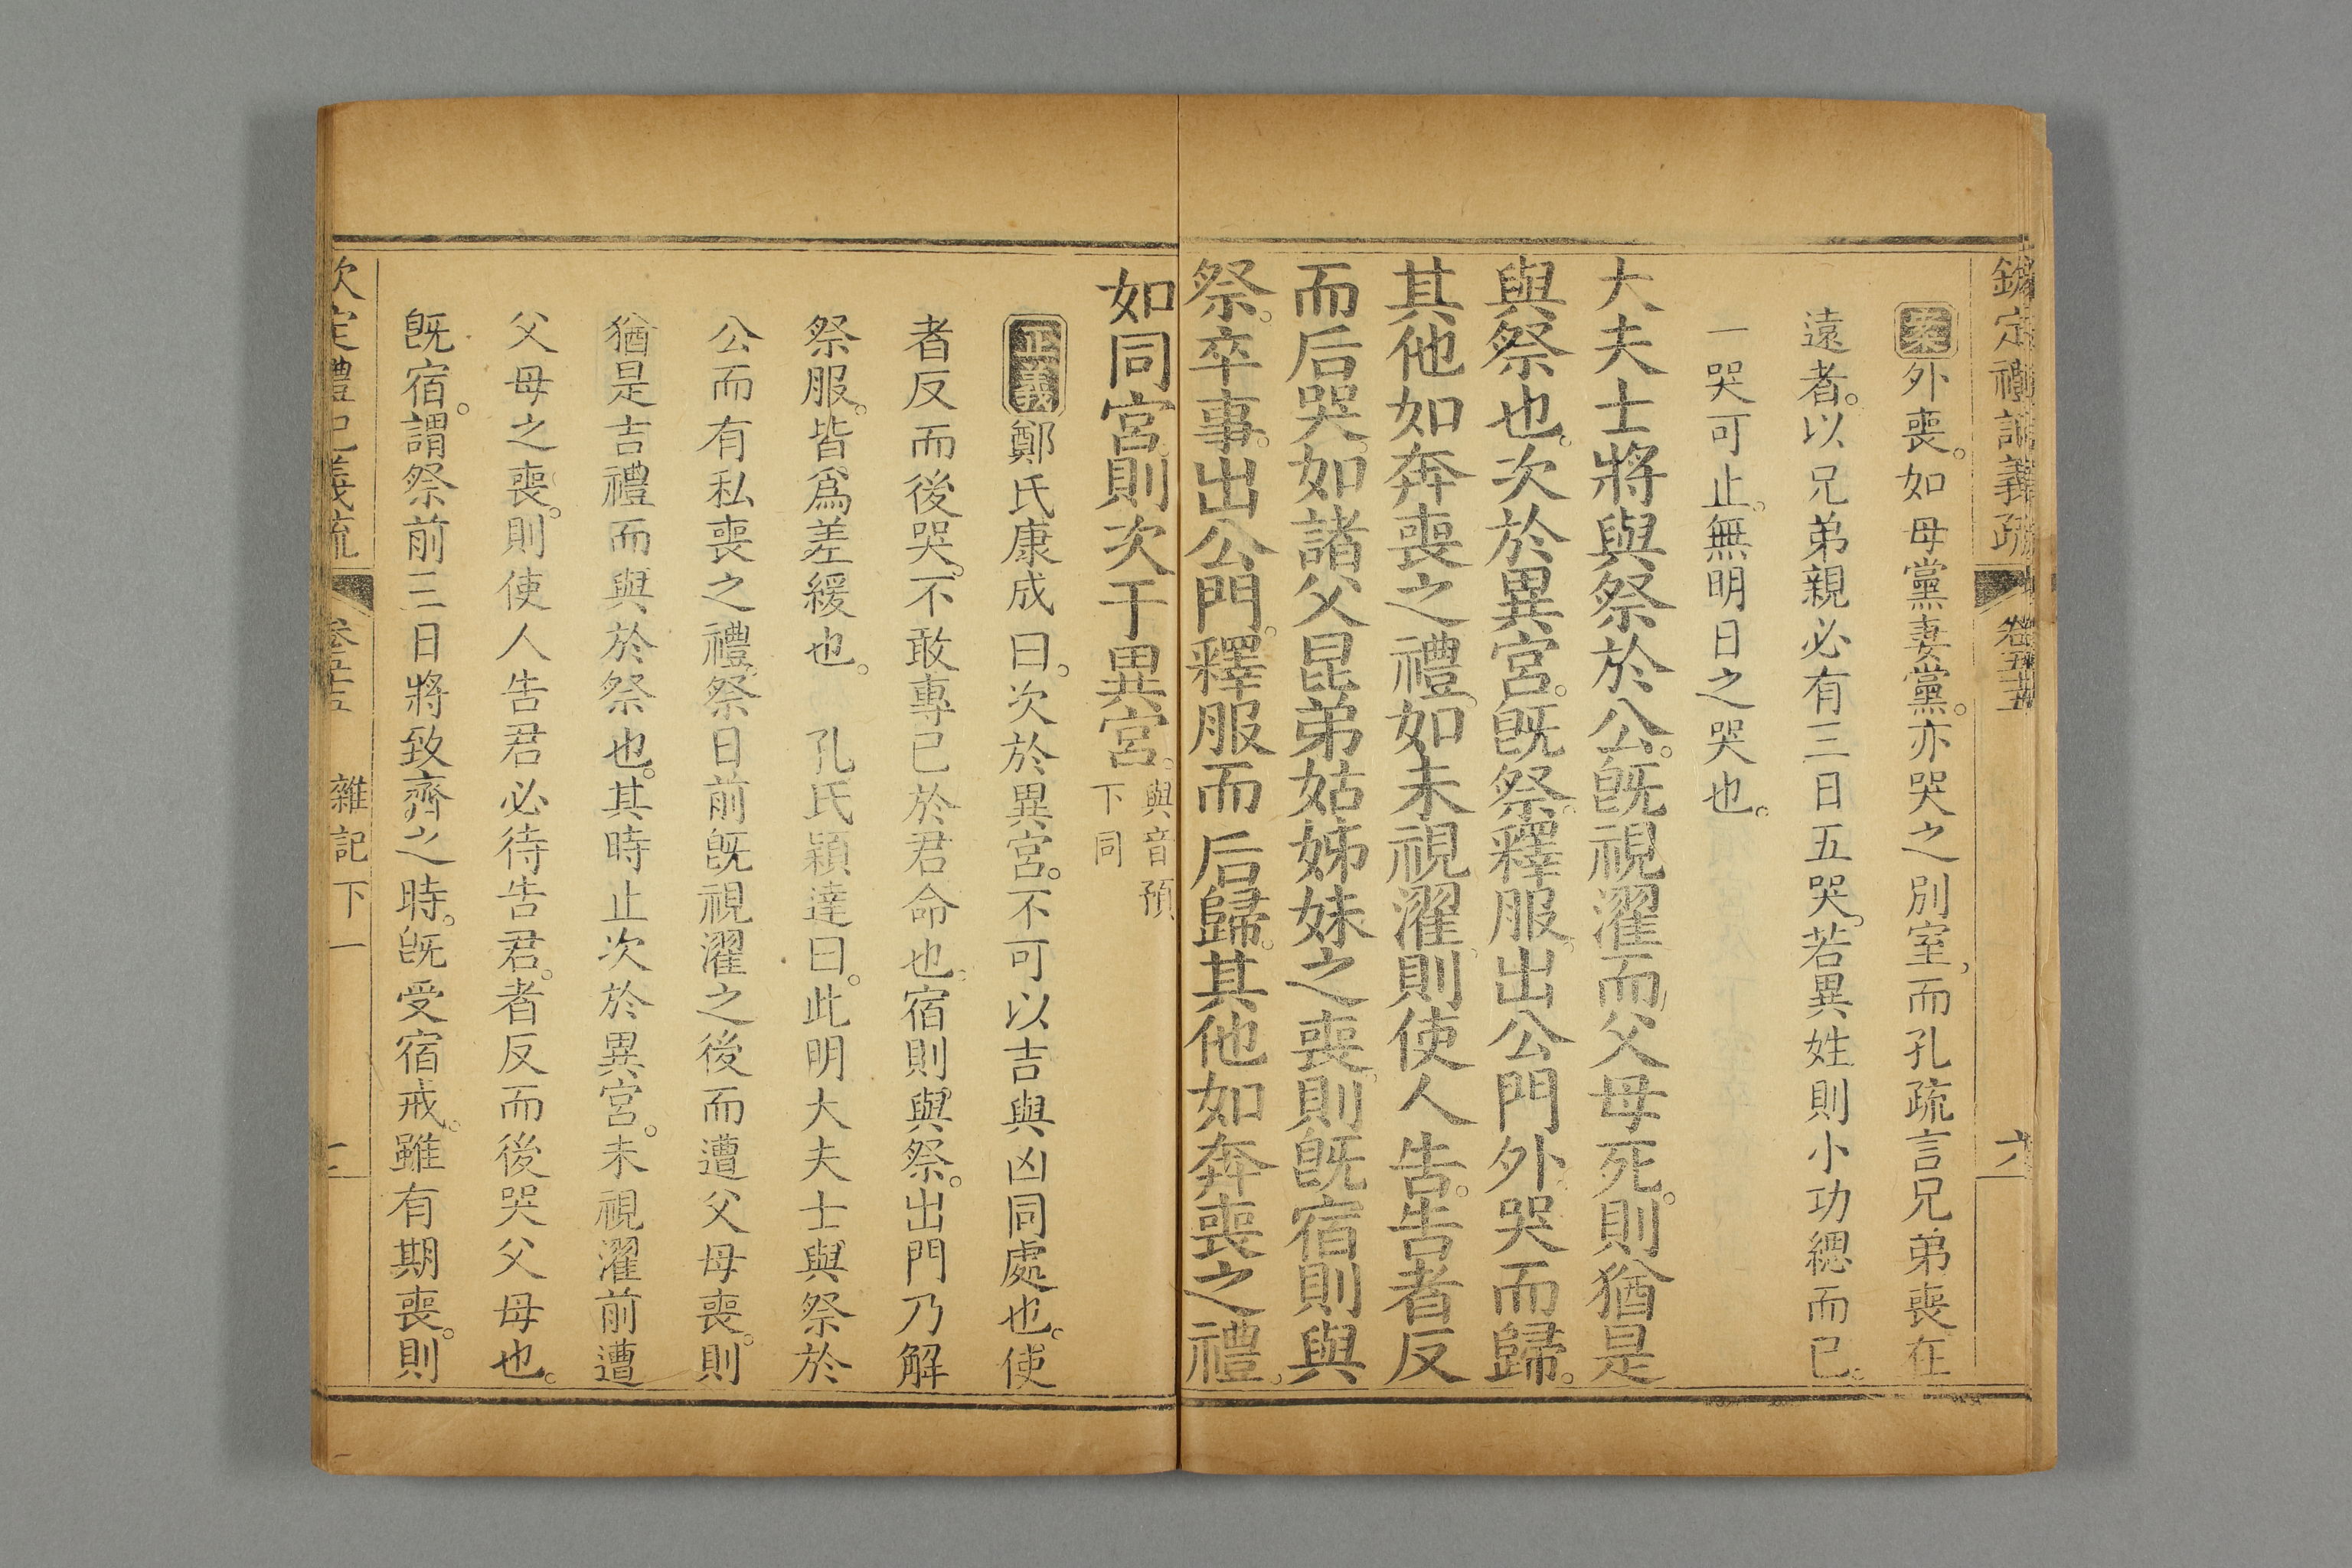 欽定禮記義疏 卷五十五 六
案外喪。如母黨妻黨。亦哭之別室,而孔疏言兄弟喪在
遠者。以兄弟親必有三日五哭。若異姓則小功緦而已。
一哭可止。無明日之哭也。
大夫士將與祭於公。旣視濯而父母死。則猶是
與祭也。次於異宮。旣祭。釋服。出公門外。哭而歸。
其他如奔喪之禮。如未視濯。則使人告。告者反
而后哭。如諸父昆弟姑姊妹之喪。則旣宿則與
祭。卒事。出公門。釋服而后歸。其他如奔喪之禮。
如同宮則次于異宮。與音預
下同
正義鄭氏康成曰。次於異宮。不可以吉與凶同處也。使
者反而後哭。不敢專已於君命也。宿則與祭。出門乃解
祭服。皆爲差緩也。 孔氏穎達曰。此明大夫士與祭於
公而有私喪之禮。祭日前旣視濯之後而遭父母喪。則
猶是吉禮而與於祭也。其時止次於異宮。未視濯前遭
父母之喪。則使人告君必待告君。者反而後哭父母也。
旣宿。謂祭前三日將致齊之時。旣受宿戒。雖有期喪。則
欽定禮記義疏 卷五十五 雜記下一